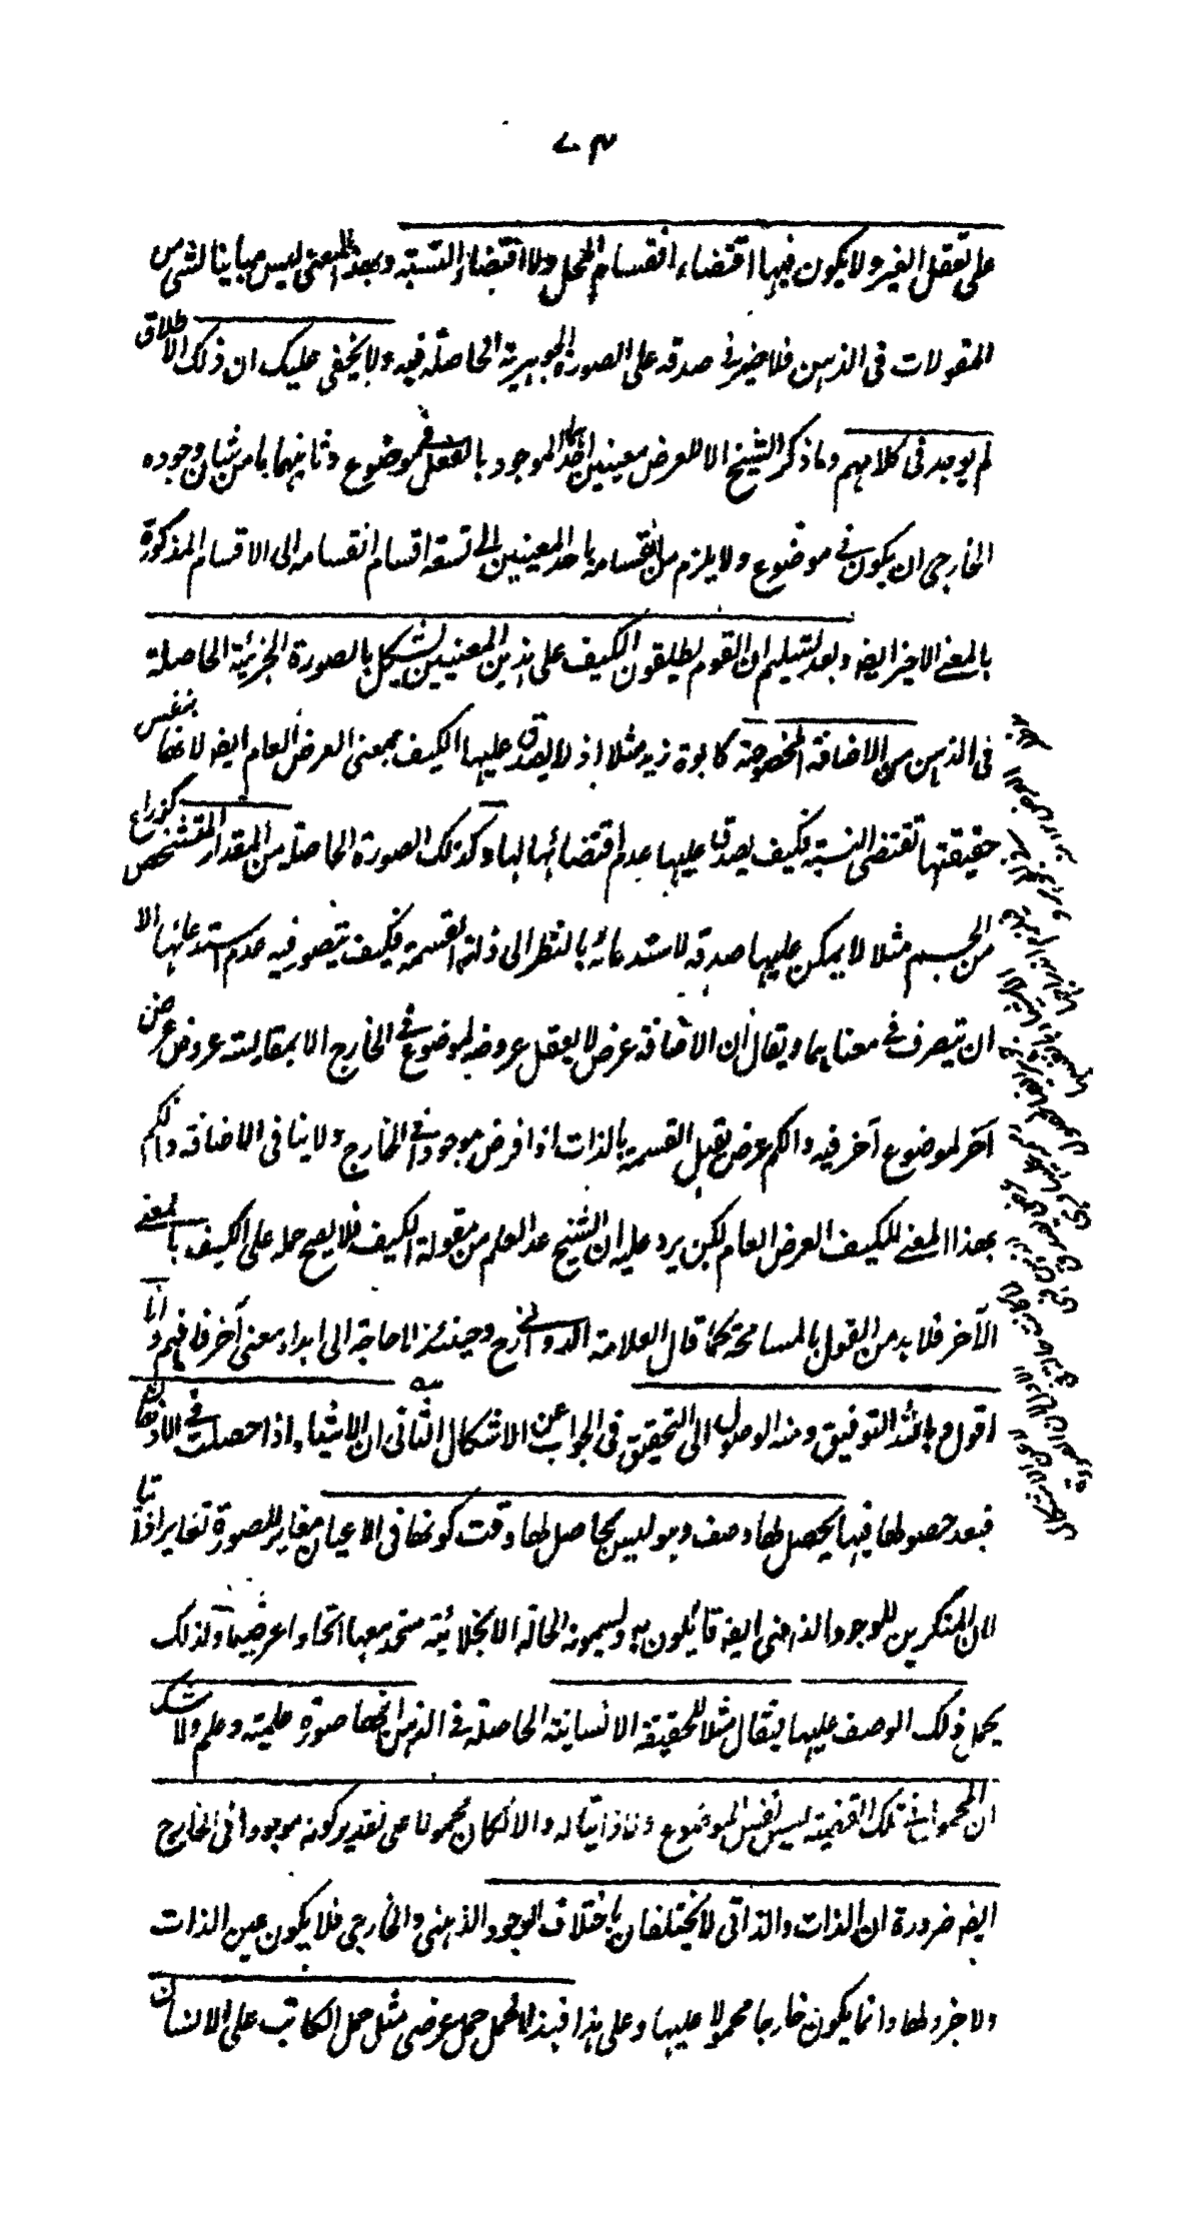 ٧٣
على تعقل الغير ولا يكون فيها اقتضاء انقسام المحل ولا اقتضاء النسبة وبهذا المعنى ليس مباينا لشئ من
المقولات فى الذهن فلا ضير فى صدقه على الصورة الجوهرية الحاصلة فيه ولا يخفى عليك ان ذلك الاطلاق
لم يوجد فى كلامهم وما ذكر الشيخ الا للعرض معنيين احدهما الموجود بالفعل فى موضوع وثانيهما ما من شان وجوده
الخارجى ان يكون فى موضوع ولا يلزم من انقسامه باحد المعنيين الى تسعة اقسام انقسامه الى الاقسام المذكورة
بالمعنى الاخير ايضا وبعد تسليم ان القوم يطلقون الكيف على هذين المعنيين يشكل بالصورة الجزئية الحاصلة
فى الذهن من الاضافة المخصوصة كابوة زيد مثلا اذ لا يصدق عليها الكيف بمعنى العرض العام ايضا لانها بنفس
حقيقتها تقتضى النسبة فكيف يصدق عليها عدم اقتضائها لها وكذلك الصورة الحاصلة من المقدار المتشخص كذراع
من الجسم مثلا لا يمكن عليها صدقه لاستدعائه بالنظر الى ذاته القسمة فكيف يتصور فيه عدم استدعائها الا
ان يتصرف فى معناهما ويقال ان الاضافة عرض لا يعقل عروضه لموضوع فى الخارج الا بمقايسته عروض عرض
آخر لموضوع آخر فيه والكم عرض يقبل القسمة بالذات اذا فرض موجودا فى الخارج ولا ينافى الاضافة والكم
بهذا المعنى للكيف العرض العام لكن يرد عليه ان الشيخ عد العلم من مقولة الكيف فلا يصح حمله على الكيف بالمعنى
الآخر فلا بد من القول بالمسامحة كما قال العلامة الدوانى رح وحينئذ لا حاجة الى ابداء معنى آخر فافهم وانا
اقول وبالله التوفيق ومنه الوصول الى التحقيق فى الجواب عن الاشكال الثانى ان الاشياء اذا حصلت فى الاذهان
فبعد حصولها فيها يحصل لها وصف وهو ليس بحاصل لها وقت كونها فى الاعيان مغاير للصورة تغايرا ذاتيا
لان المنكرين للوجود الذهنى ايضا قائلون به ويسمونه الحالة الانجلائية متحد معها اتحادا عرضيا ولذلك
يحمل ذلك الوصف عليها فيقال مثلا للحقيقة الانسانية الحاصلة فى الذهن انها صورة علمية وعلم ولا شك
ان المحمول فى تلك القضية ليس نفس الموضوع ولا ذاتيا له والا لكان محمولا على تقدير كونه موجودا فى الخارج
ايضا ضرورة ان الذات والذاتى لا يختلفان باختلاف الوجود الذهنى والخارجى فلا يكون عين الذات
ولا جزءا لها وانما يكون خارجا محمولا عليها وعلى هذا فهذا الحمل حمل عرضى مثل حمل الكاتب على الانسان